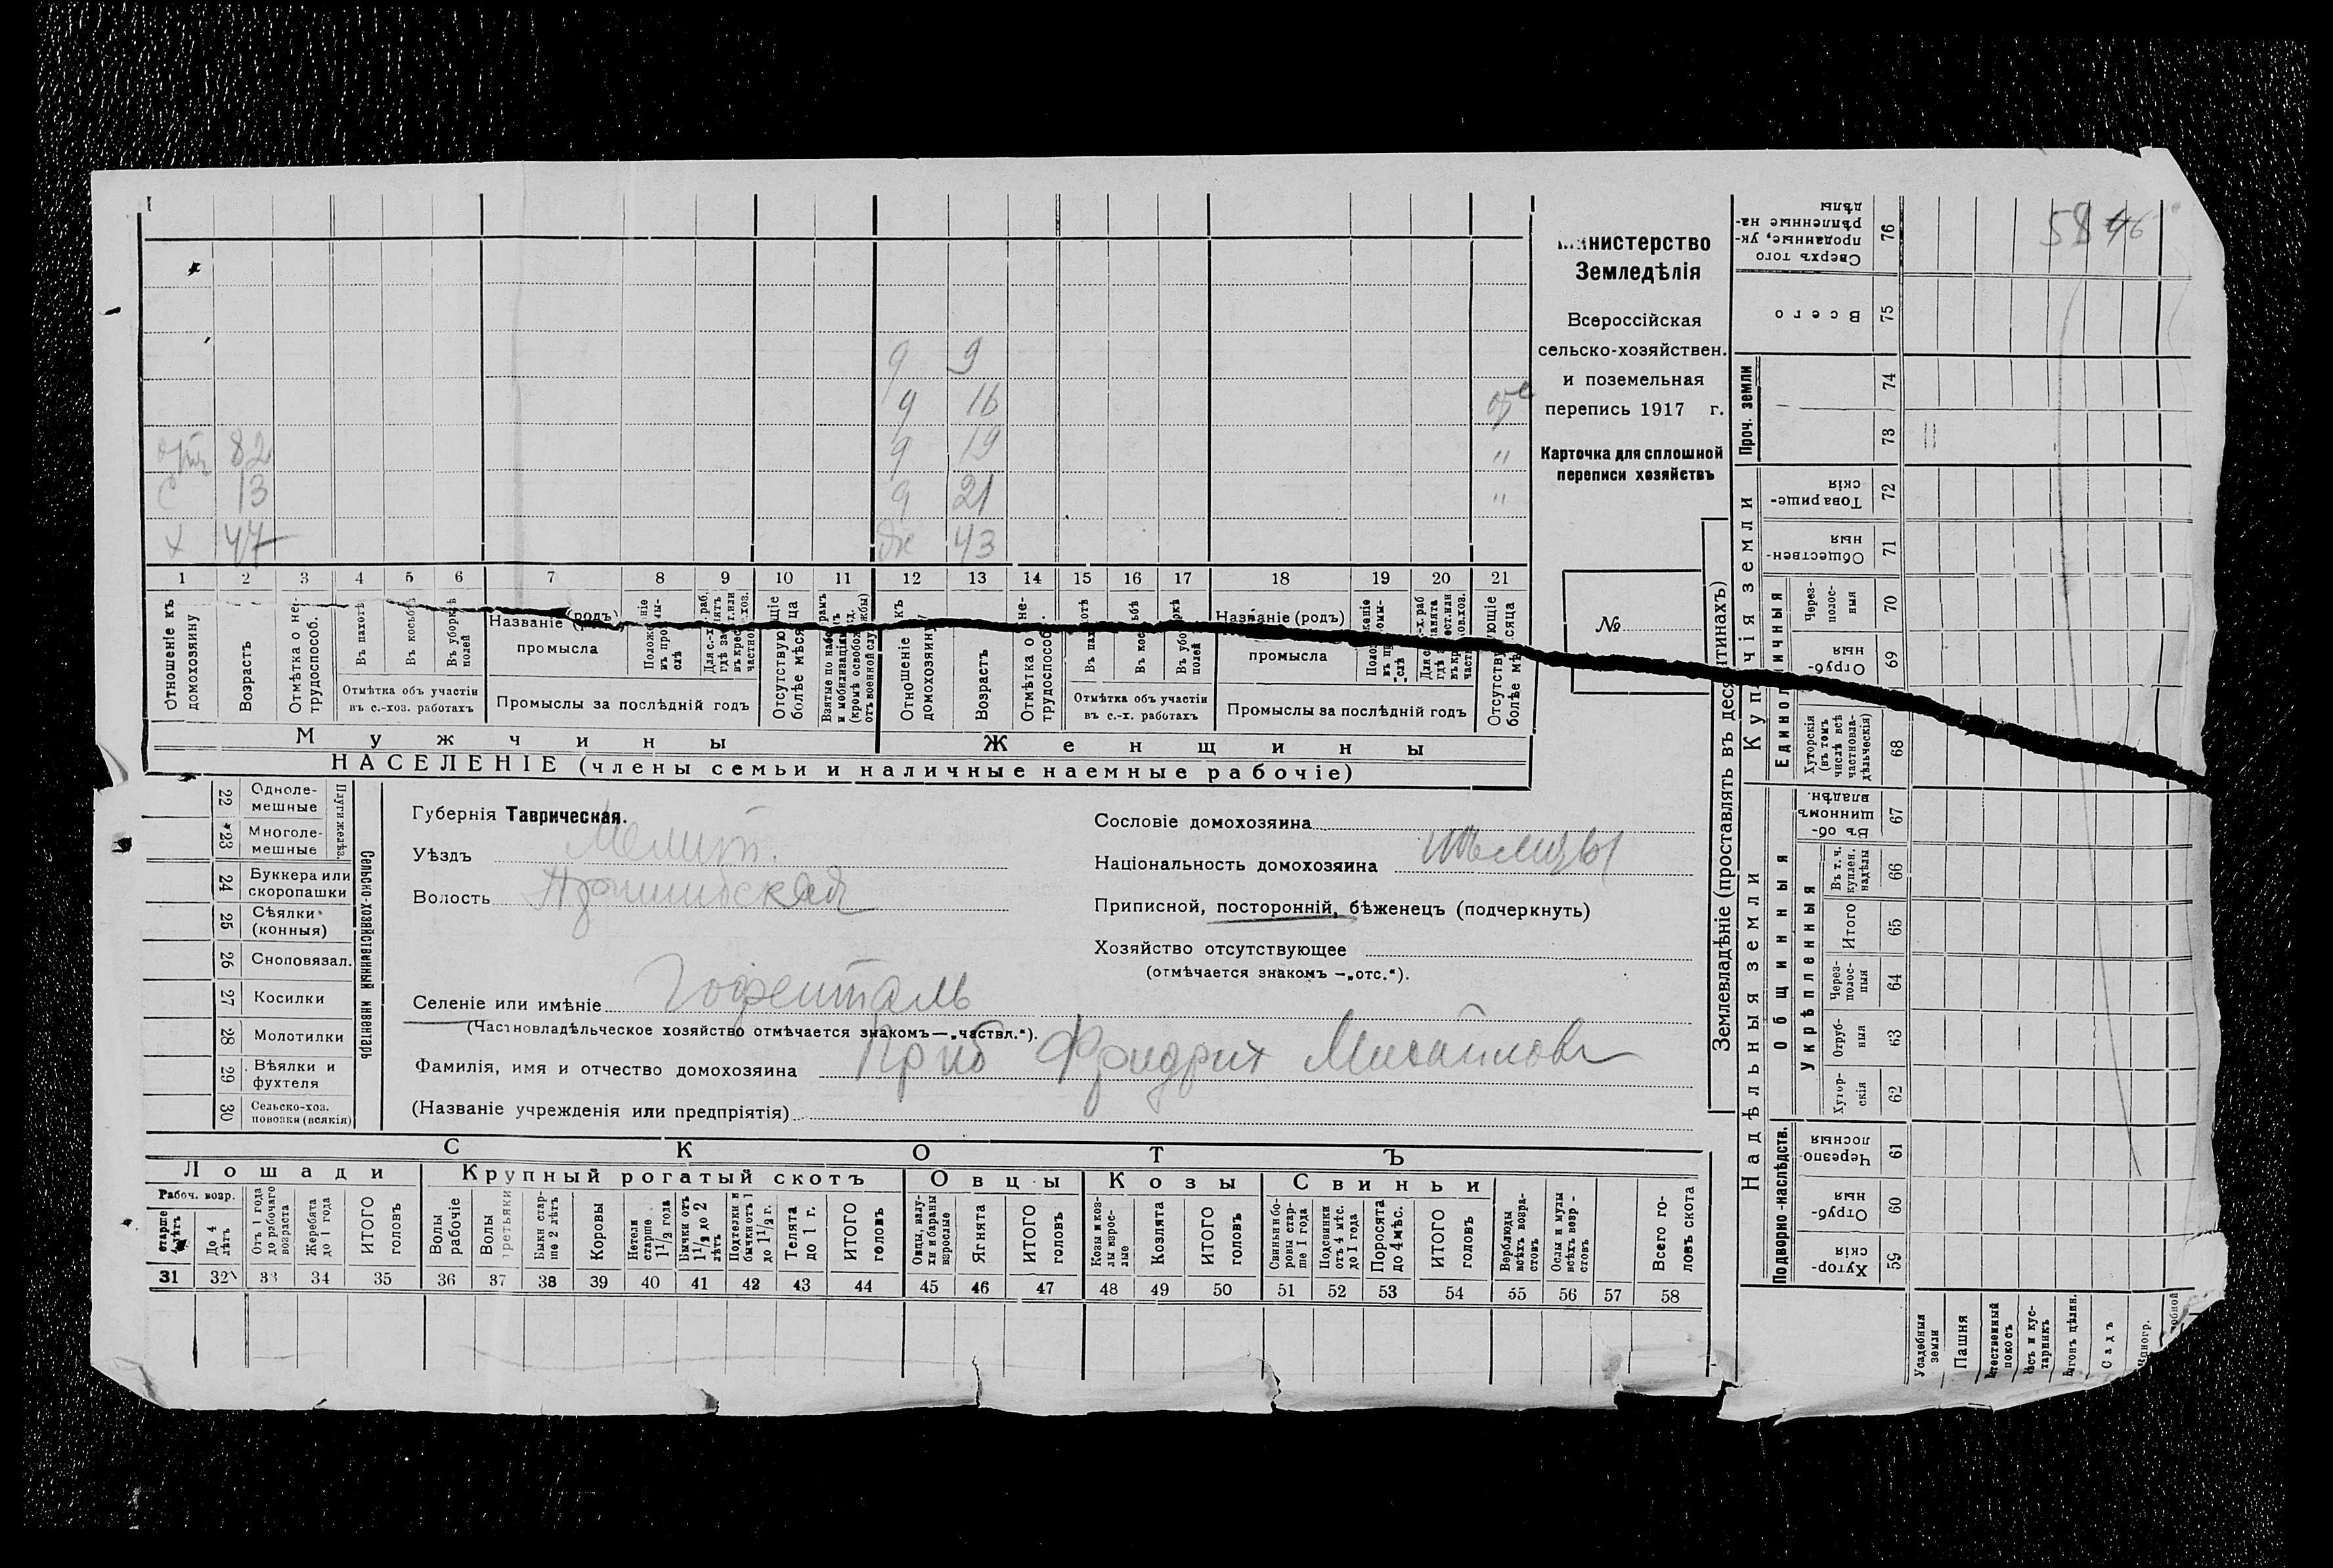 5846
Министерство
Земледѣлія
Всероссійская
сельско-хозяйствен.
и поземельная
перепись 1917 г.
Карточка для сплошной
переписи хозяйствъ
№
д 9
д 16
отц 82 д 19 "
с 13 д 21 "
х 47 же 43
1 2 3 4 5 6 7 8 9 10 11 12 13 14 15 16 17 18 19 20 21
Отношеніе къ домохозяину
Возрастъ
Отмѣтка о не-трудоспособ.
Въ пахотѣ
Въ косьбѣ
Въ уборкѣ полей
Отмѣтка объ участіи
въ с.-хоз. работахъ
Названіе (родъ)
промысла
Промыслы за послѣдній годъ
Отсутствующіе болѣе мѣсяца
Отношеніе къ домохозяину
Возрастъ
Отмѣтка о не-трудоспособ.
Въ пахотѣ
Въ косьбѣ
Въ уборкѣ полей
Отмѣтка объ участіи
въ с.-х. работахъ
Названіе (родъ)
промысла
Промыслы за послѣдній годъ
Отсутствующіе болѣе мѣсяца
Мужчины
Женщины
НАСЕЛЕНІЕ (члены семьи и наличные наемные рабочіе)
22 Одноле-мешные
23 Многоле-мешные
Плуги желѣз.
24 Буккера или скоропашки
25 Сѣялки (конныя)
26 Сноповязал.
27 Косилки
28 Молотилки
29 Вѣялки и фухтеля
30 Сельско-хоз. повозки (всякія)
Сельско-хозяйственный инвентарь
Губернія Таврическая.
Уѣздъ Мелит.
Волость Пришибская
Селеніе или имѣніе Гофенталь
(Частновладѣльческое хозяйство отмѣчается знакомъ—„частвл.“).
Фамилія, имя и отчество домохозяина Приб Фридрих Михайлов
(Названіе учрежденія или предпріятія)
Сословіе домохозяина
Національность домохозяина нѣмцы
Приписной, посторонній, бѣженецъ (подчеркнуть)
Хозяйство отсутствующее
(отмѣчается знакомъ —„отс.“).
СКОТЪ
Лошади
Крупный рогатый скотъ
Овцы
Козы
Свиньи
Рабоч. возр.
старше 4 лѣтъ
До 4 лѣтъ
Отъ 1 года до рабочаго возраста
Жеребята до 1 года
ИТОГО головъ
Волы рабочіе
Волы третьяки
Быки стар-ше 2 лѣтъ
Коровы
Нетели старше 1½ года
Бычки отъ 1½ до 2 лѣтъ
Подтелки и бычки отъ 1 до 1½ г.
Телята до 1 г.
ИТОГО головъ
Овцы, валу-хи и бараны взрослые
Ягнята
ИТОГО головъ
Козы и коз-лы взрос-лые
Козлята
ИТОГО головъ
Свиньи и бо-ровы стар-ше 1 года
Подсвинки отъ 4 мѣс. до 1 года
Поросята до 4 мѣс.
ИТОГО головъ
Верблюды всѣхъ возра-стовъ
Ослы и мулы всѣхъ возр-стовъ
Всего го-ловъ скота
31 32 33 34 35 36 37 38 39 40 41 42 43 44 45 46 47 48 49 50 51 52 53 54 55 56 57 58
Землевладѣніе (проставлять въ десятинахъ)
Надѣльныя земли
Купчія земли
Проч. земли
Подворно-наслѣдств.
Общинныя
Укрѣпленныя
Единоличныя
76 Сверхъ того проданные, ук-рѣпленные на-дѣлы
75 Всего
74
73
72 Товарище-скія
71 Обществен-ныя
70 Через-полос-ныя
69 Отруб-ныя
68 Хуторскія (въ томъ числѣ всѣ частновла-дѣльческія)
67 Въ об-щинномъ владѣн.
66 Въ т. ч. куплен. надѣлы
65 Итого
64 Через-полос-ныя
63 Отруб-ныя
62 Хутор-скія
61 Черезпо-лосныя
60 Отруб-ныя
59 Хутор-скія
Усадебныя земли
Пашня
Естественный покосъ
Лѣсъ и кус-тарникъ
Выгонъ цѣлин.
Садъ